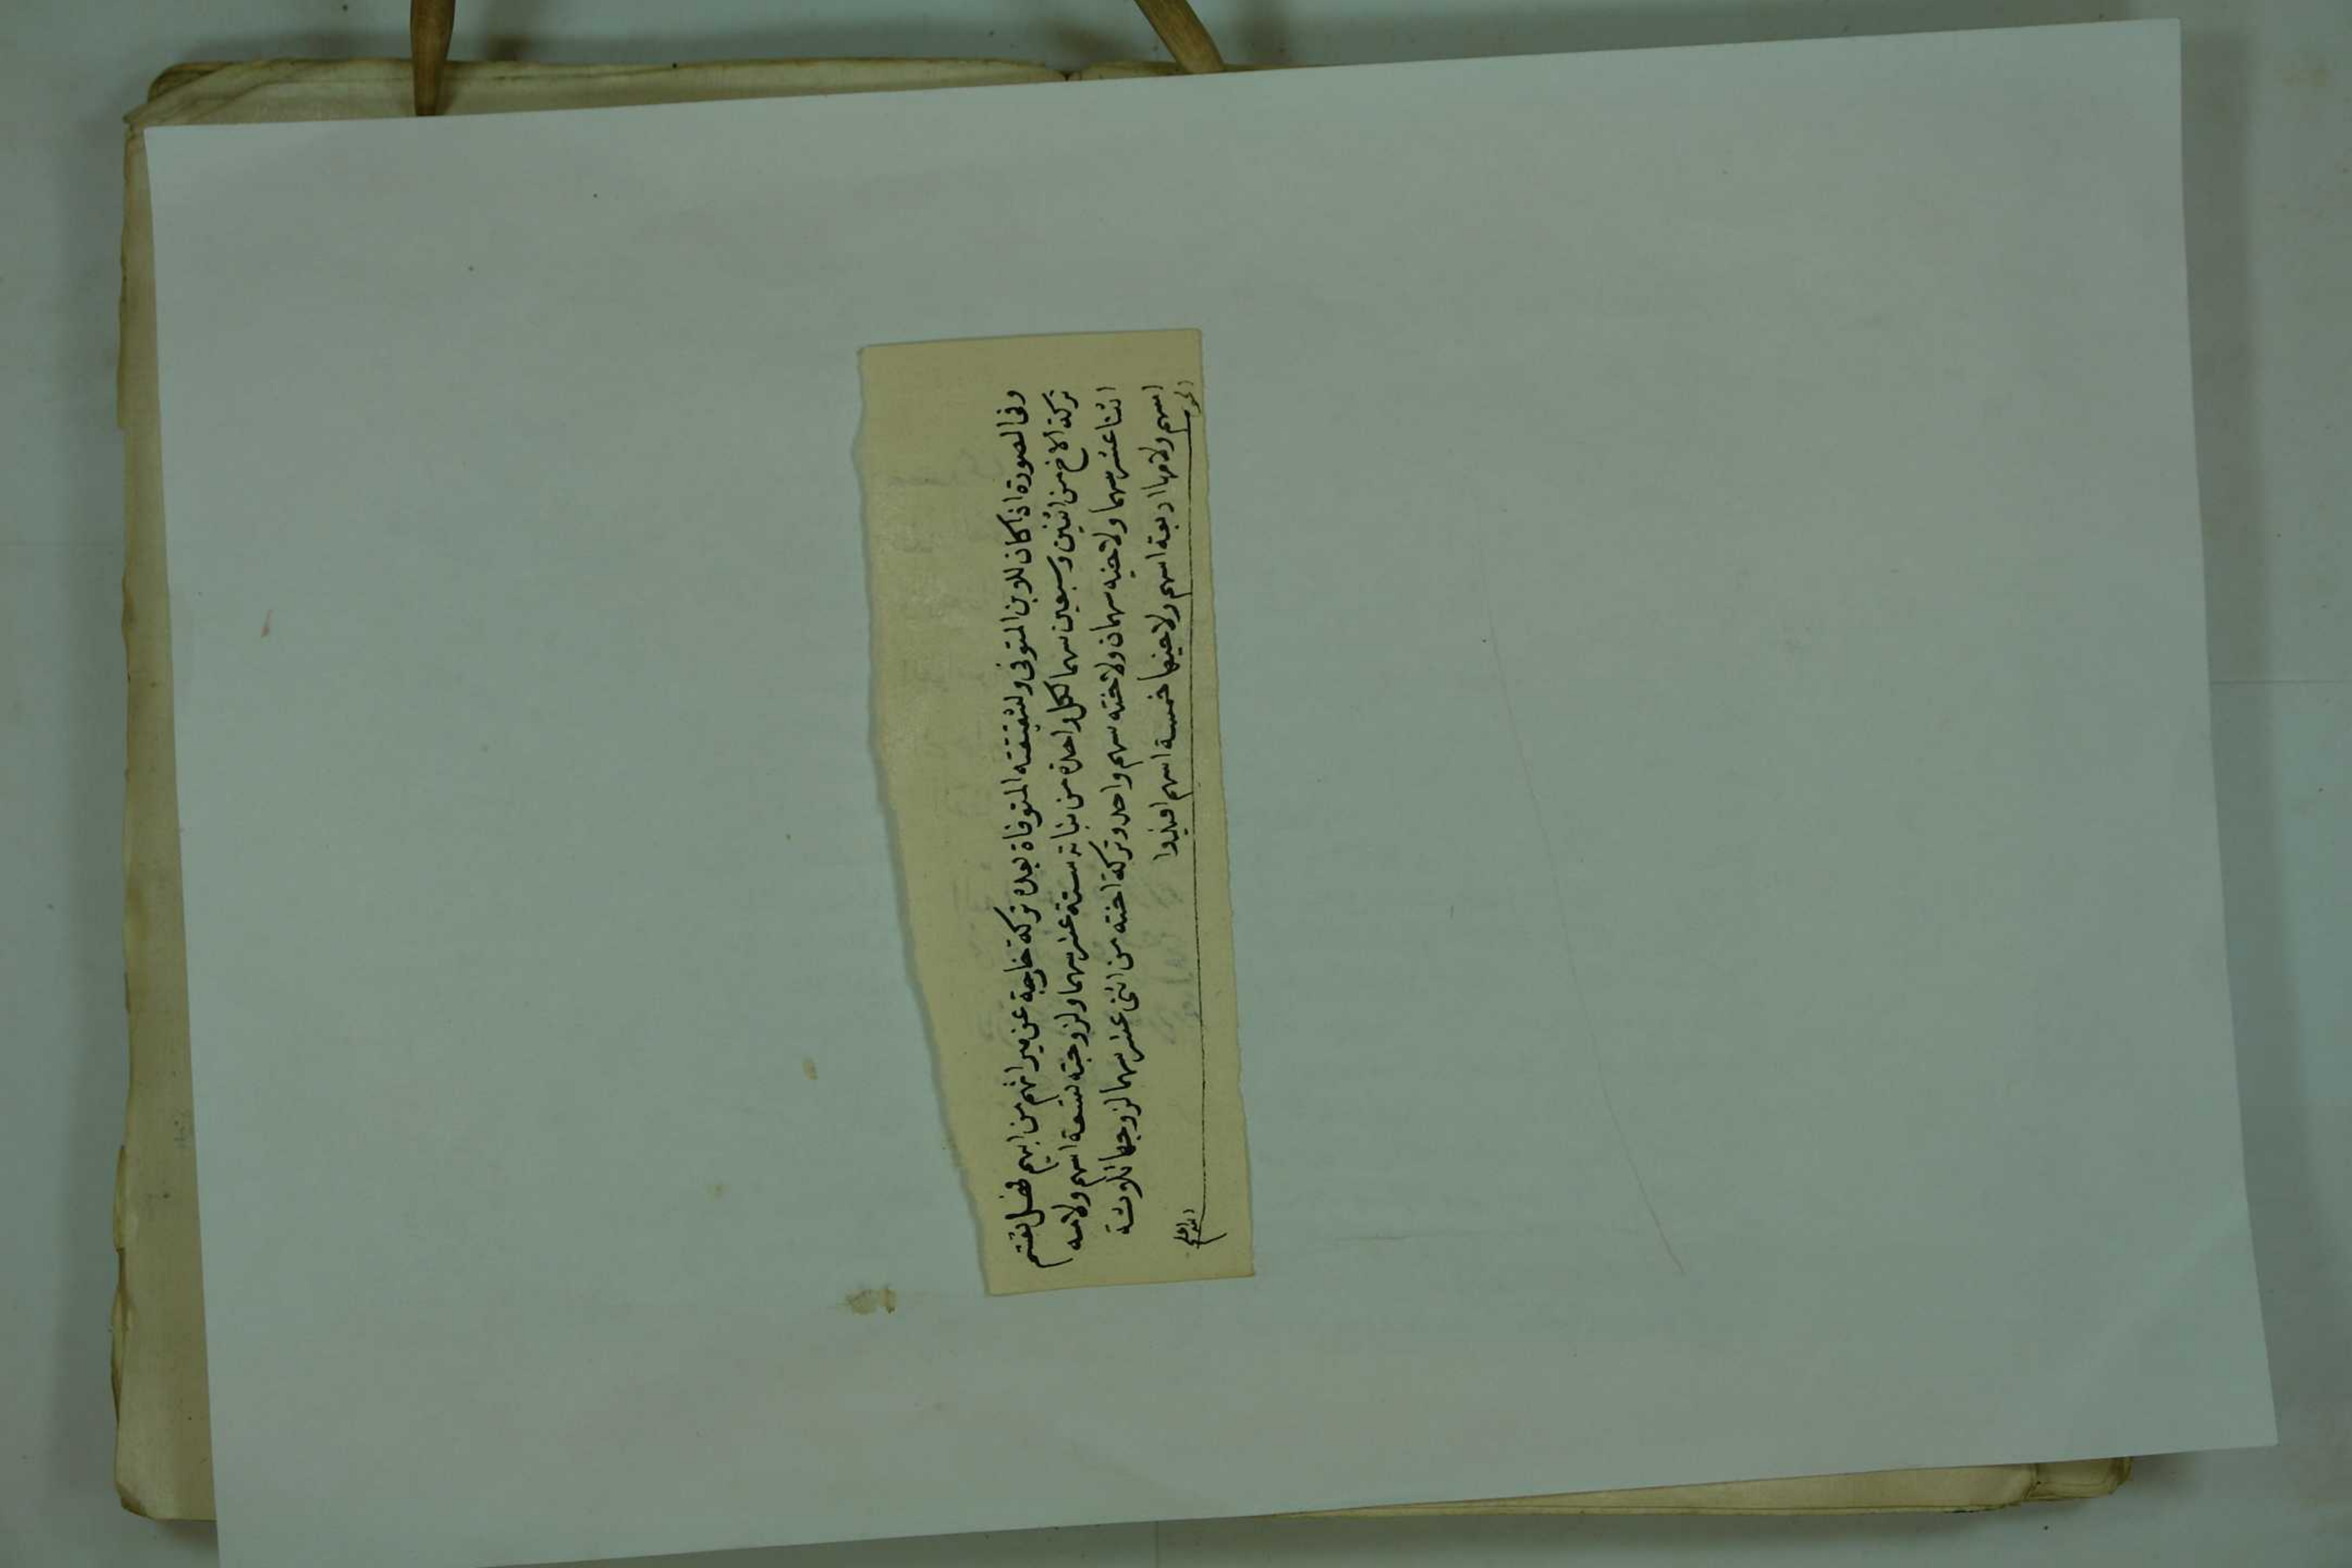 وفى الصورة اذا كان للابن المتوفى ولشقيقته المتوفاة بعده تركة خارجة عن ميراثهم من ابيهم فهل تقتسم
تركة الاخ من اثنين وسبعين سهما لكل واحدة من بناته ستة عشر سهما ولزوجته تسعة اسهم ولامه
اثنا عشر سهما ولاخيه سهمان ولاخته سهم واحد وتركة اخته من اثنى عشر سهما لزوجها ثلاثة
اسهم ولامها اربعة اسهم ولاخيها خمسة اسهم افيدوا
الجواب
الله اعلم